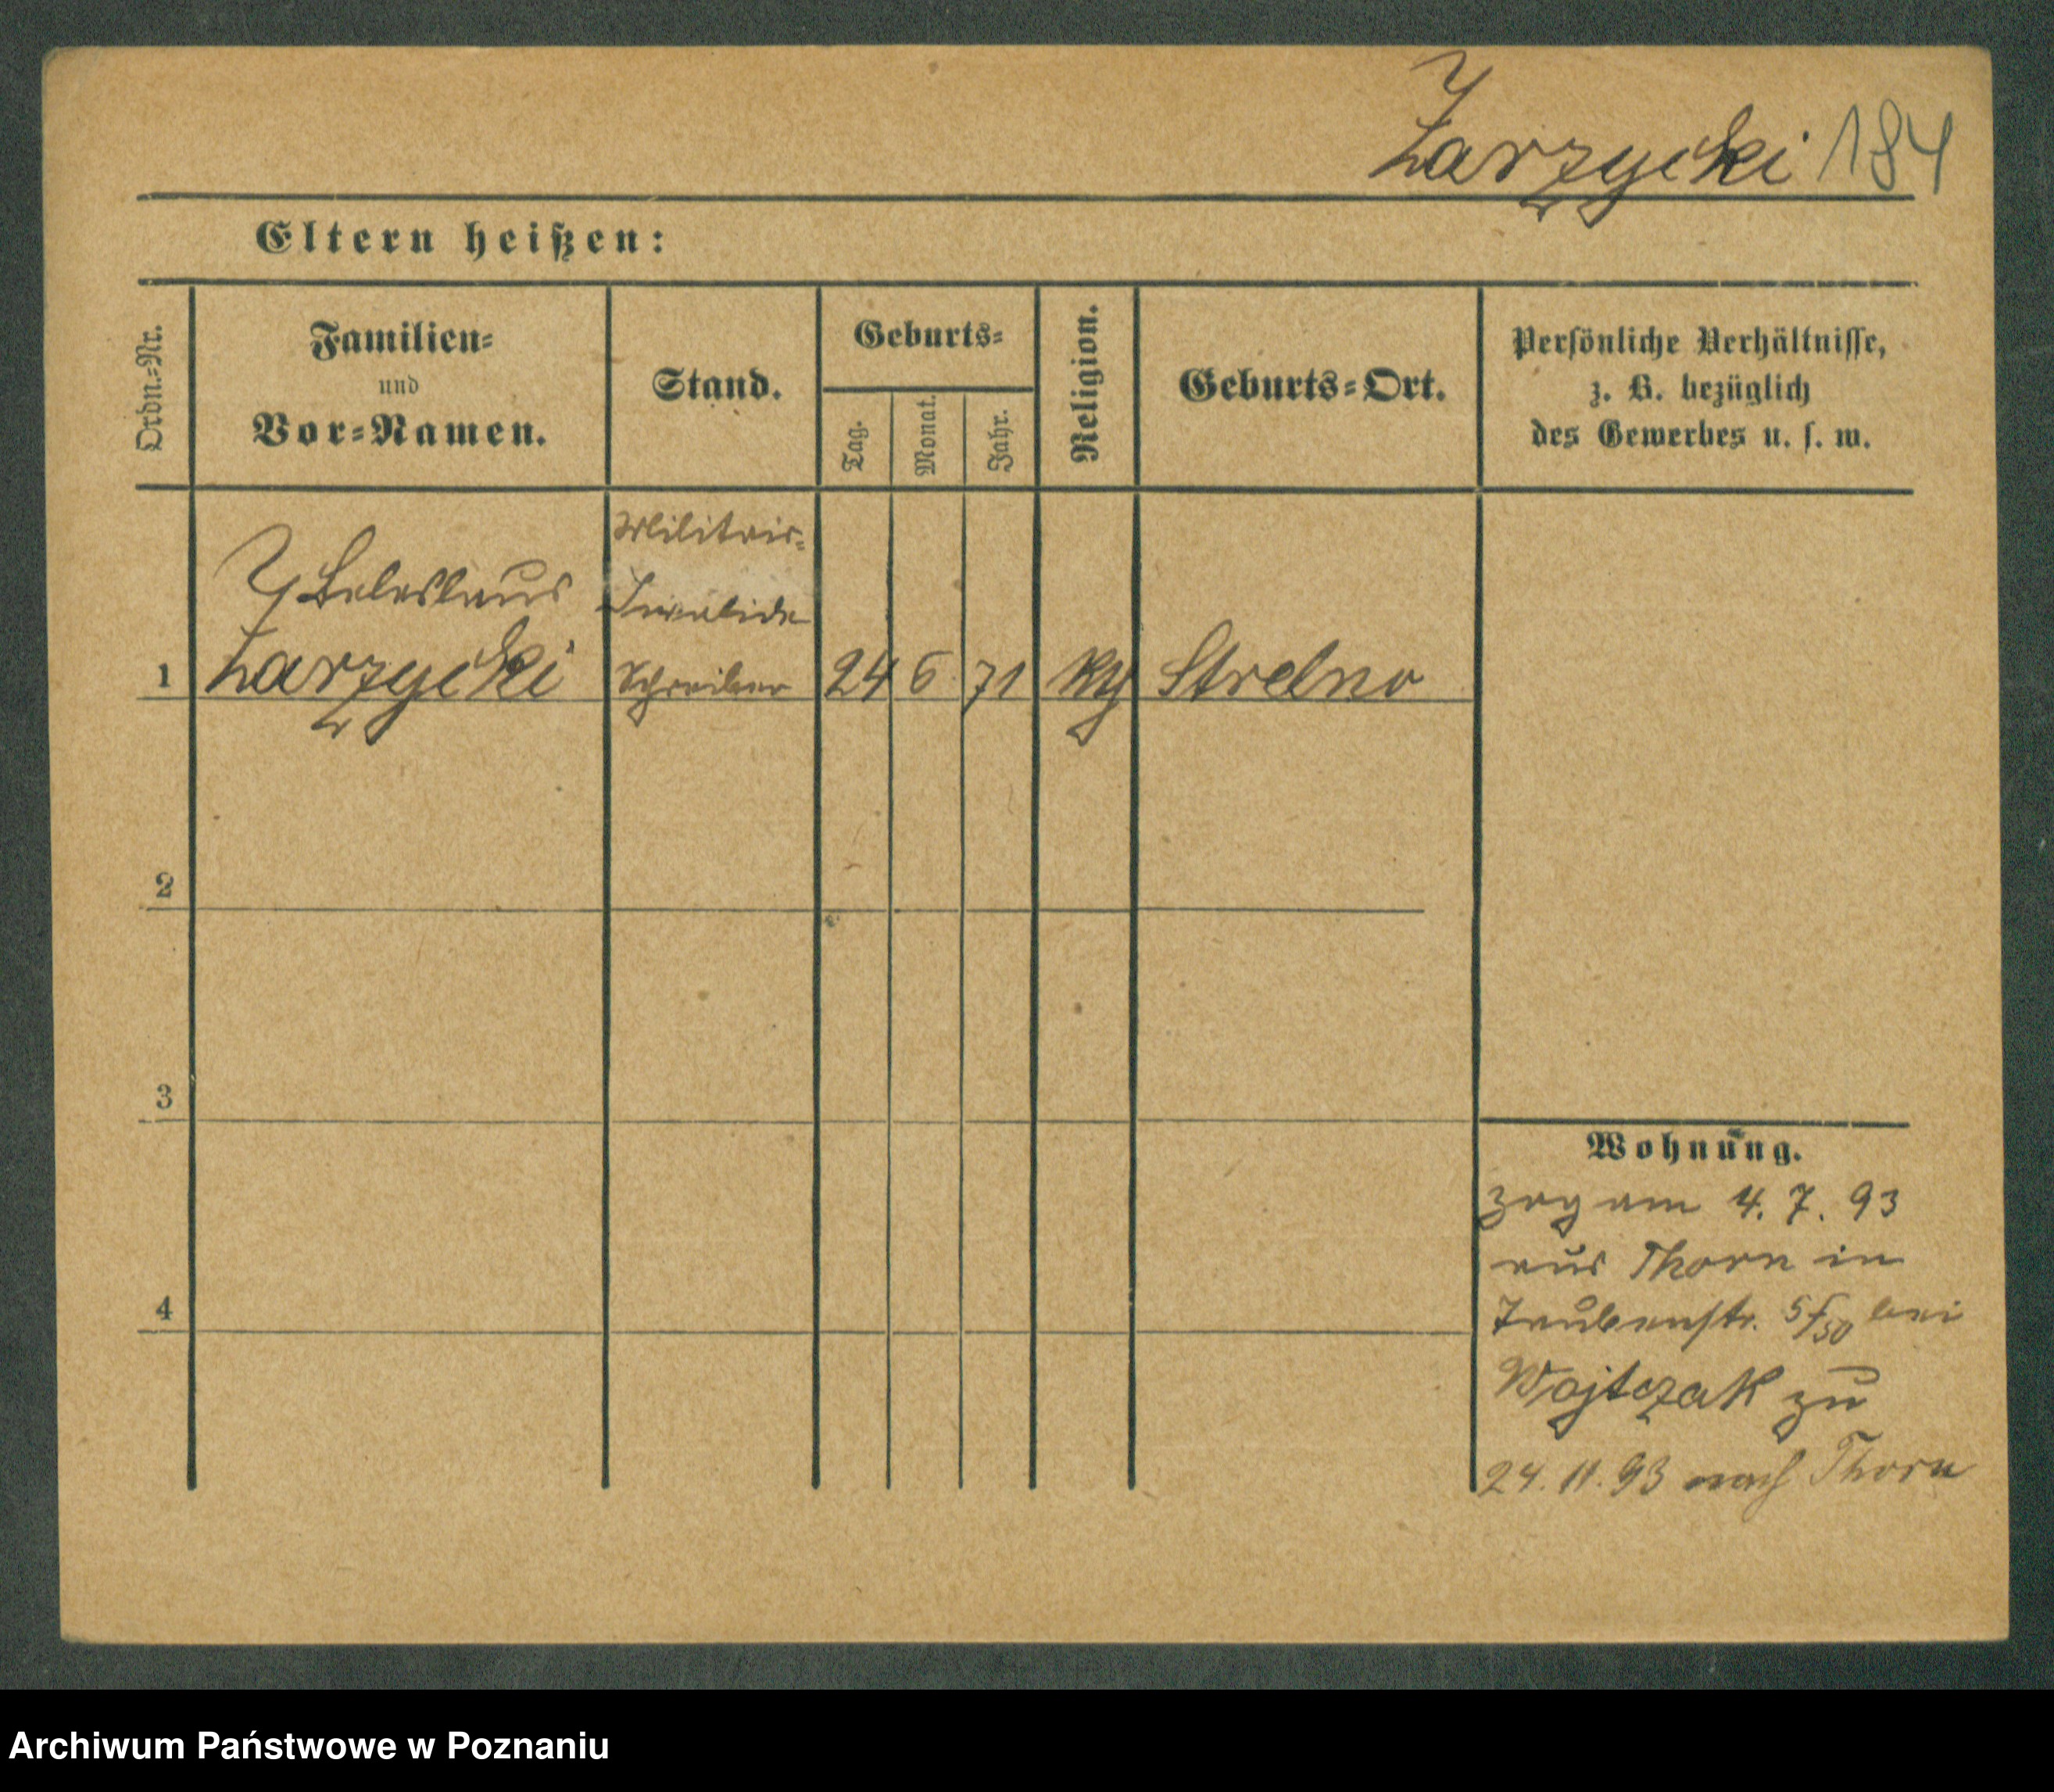 Zarzycki 184
Eltern heißen:
Ordn.-Nr.
Familien-
und
Vor-Namen.
Stand.
Geburts-
Tag.
Monat.
Jahr.
Religion.
Geburts-Ort.
Persönliche Verhältnisse,
z. B. bezüglich
des Gewerbes u. s. w.
Boleslaus
Zarzycki
Militair-
Invalide
Schreiber
1
24
6
71
Strelno
2
3
4
Wohnung.
zog am 4. 7. 93
aus Thorn in
Taubenstr. 5/50 bei
Wojtczak zu
24. 11. 93 nach Thorn
Archiwum Państwowe w Poznaniu